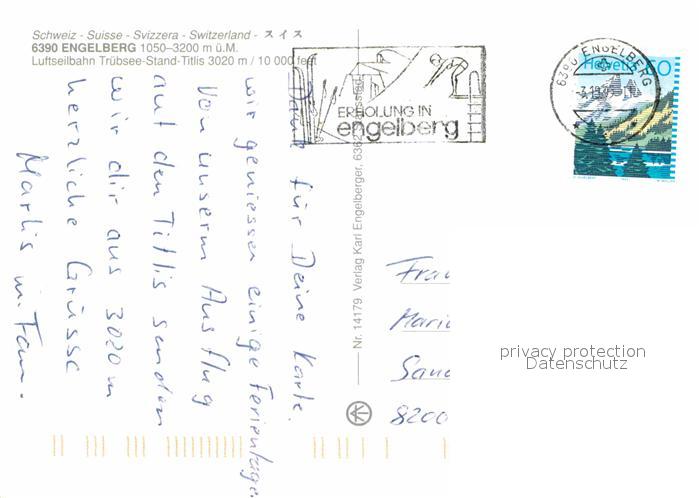 Schweiz - Suisse - Svizzera - Switzerland - スイス
6390 ENGELBERG 1050–3200 m ü.M.
Luftseilbahn Trübsee-Stand-Titlis 3020 m / 10 000 feet
Danke für Deine Karte.
wir geniessen einige Ferientage.
Von unserm Ausflug
auf den Titlis senden
wir dir aus 3020 m
herzliche Grüsse
Marlis m. Fam.
Nr. 14179 Verlag Karl Engelberger, 6362
ERHOLUNG IN
engelberg
6390 ENGELBERG
Helvetia 50
Frau
Mari
Sand
8200
privacy protection
Datenschutz